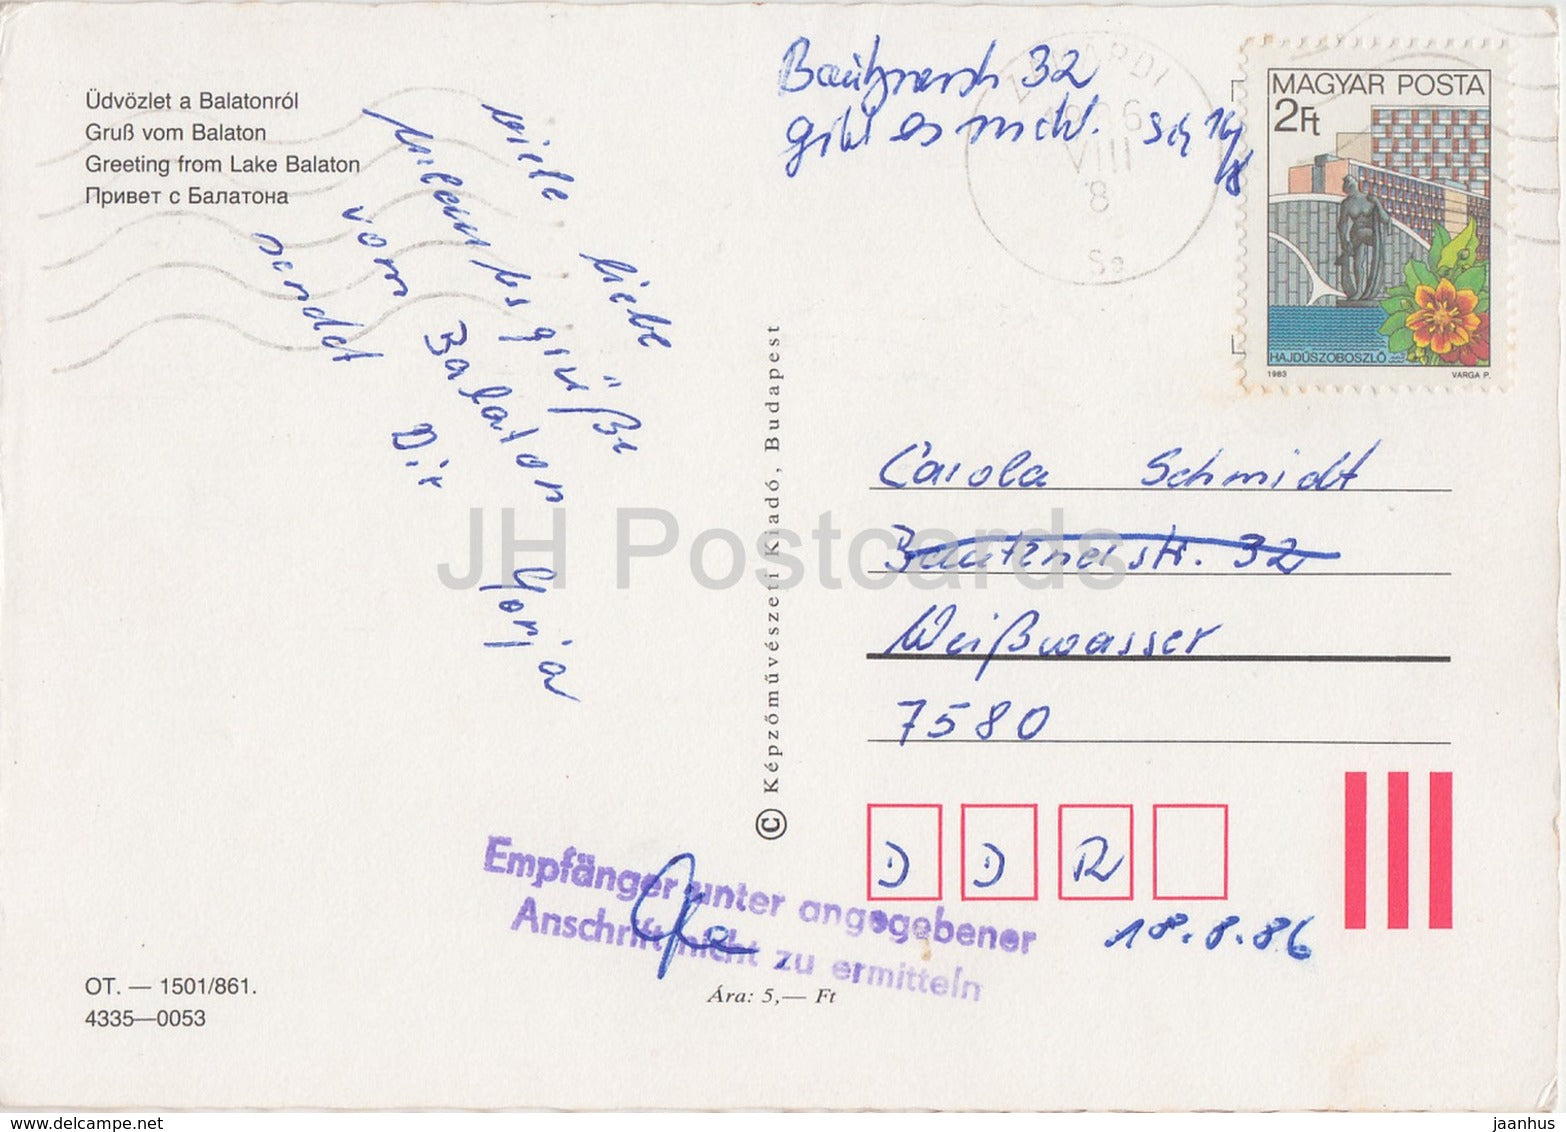 Üdvözlet a Balatonról
Gruß vom Balaton
Greeting from Lake Balaton
Привет с Балатона
viele liebe
grüße
vom Balaton
sendet Dir
Bautznerstr 32
gibt es nicht.
ZAMÁRDI
1986
VIII
8
MAGYAR POSTA
2Ft
HAJDÚSZOBOSZLÓ
1983 VARGA P.
Carola Schmidt
Bautznerstr. 32
Weißwasser
7580
D D R
18.8.86
© Képzőművészeti Kiadó, Budapest
Empfänger unter angegebener
Anschrift nicht zu ermitteln
Ára: 5,— Ft
OT. — 1501/861.
4335—0053
JH Postcards
www.delcampe.net
jaanhus